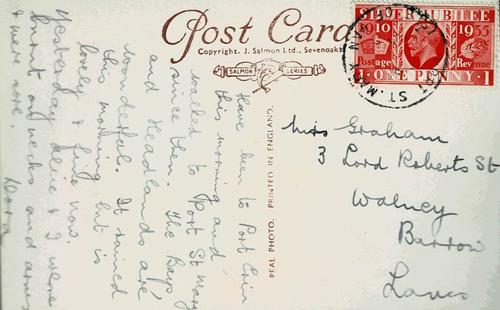 Post Card
Copyright. J. Salmon Ltd., Sevenoaks
SALMON SERIES
SILVER JUBILEE
1910 1935
Postage Revenue
1 ONE PENNY 1
REAL PHOTO. PRINTED IN ENGLAND.
Miss Graham
3 Lord Roberts St
Walney
Barrow
Lancs
Have been to Port Erin
this morning and
walked to Port St Mary
since then. The Bays
and Headlands are
wonderful. It rained
this morning but is
lovely & fine now.
Yesterday & I were
burnt on necks and arms
& were sore.